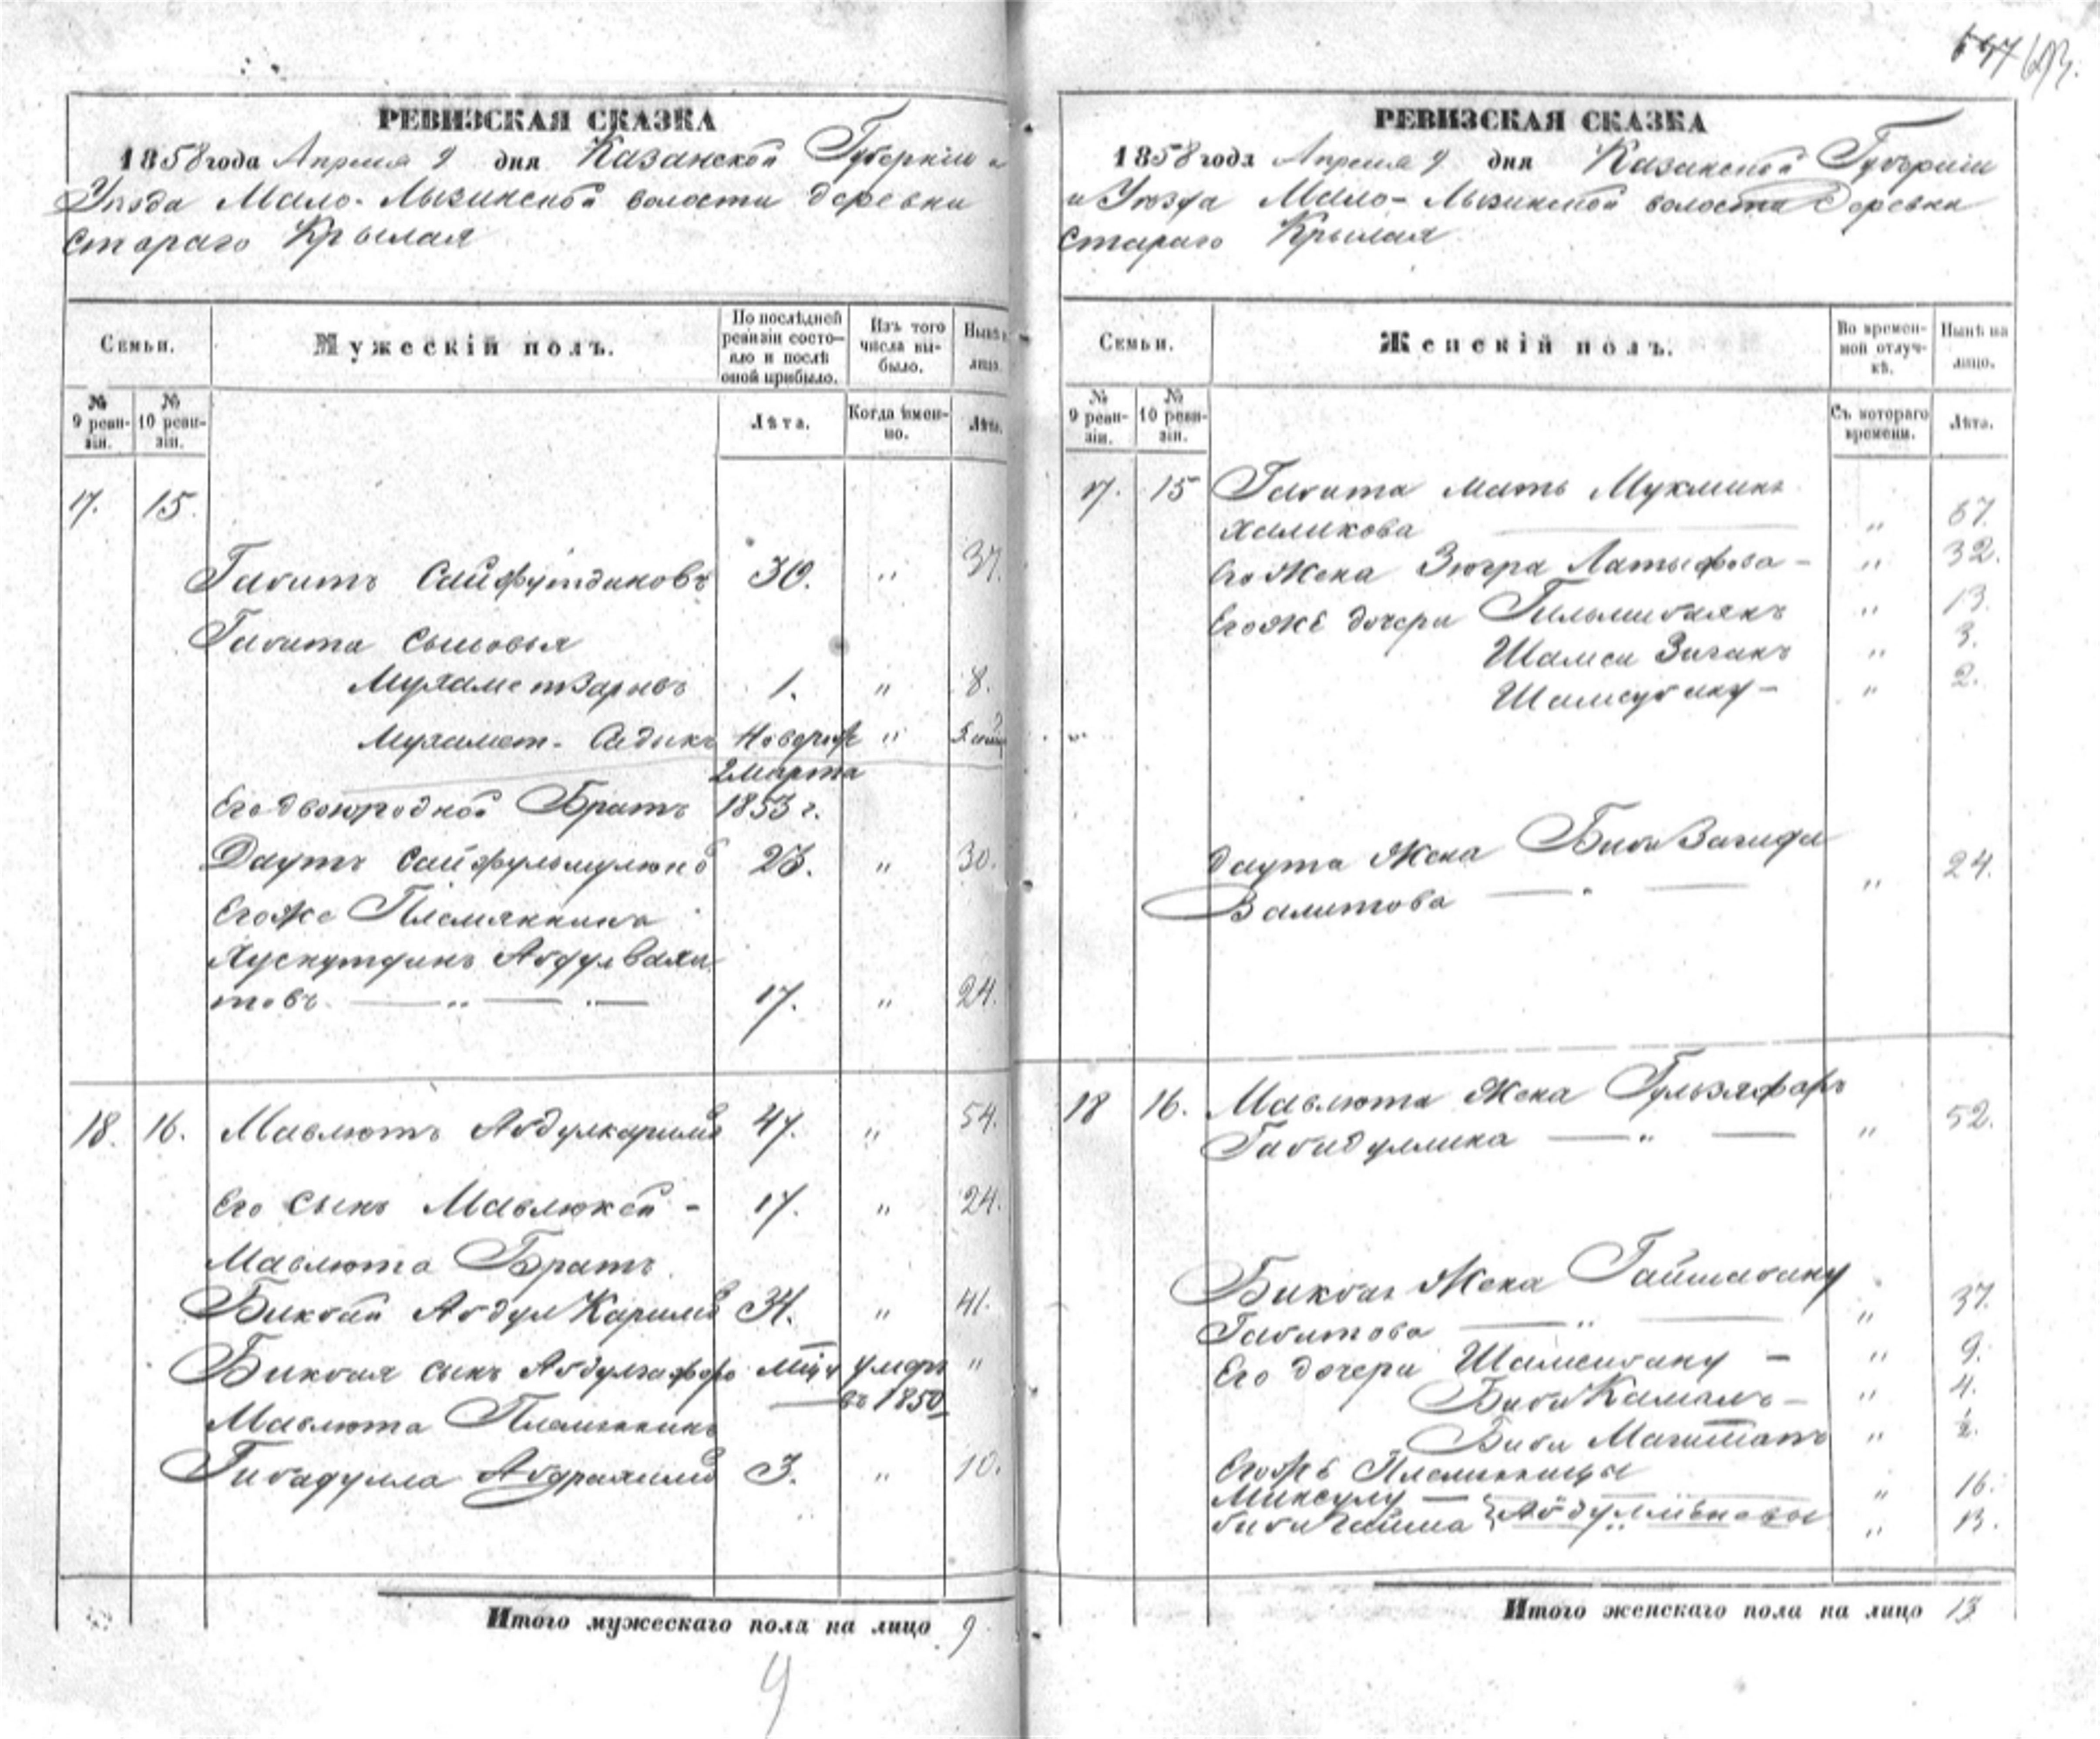 РЕВИЗСКАЯ СКАЗКА
1858 года Апреля 9 дня Казанской Губернiи и
Уезда Мало-Лызинской волости деревни
Стараго Крылая
Семьи.
Мужескiй полъ.
По послѣдней ревизiи состояло и послѣ оной прибыло.
Изъ того числа выбыло.
Нынѣ на лицо.
№ 9 ревизiи.
№ 10 ревизiи.
Лѣта.
Когда именно.
Лѣта.
17. 15.
Габитъ Сайфутдиновъ 30. " 37.
Габита сыновья
1. " 8.
Мухамет-Садыкъ "
2 марта
Его двоюродной Братъ 1853 г.
Даутъ 23. " 30.
Его же Племянникъ
Хуснутдинъ Абдулвахи
товъ — " — 17. " 24.
18. 16. Мавлютъ Абдулкаримов 47. " 54.
Его сынъ Мавлюкей - 17. " 24.
Мавлюта Братъ
Бикбай Абдул Каримов 34. " 41.
Бикбая сынъ умеръ "
въ 1850
Мавлюта Племянникъ
Гибадулла 3. " 10.
Итого мужескаго пола на лицо 9
9
РЕВИЗСКАЯ СКАЗКА
1858 года Апреля 9 дня Казанской Губернiи
и Уезда Мало-Лызинской волости Деревни
Стараго Крылая
Семьи.
Женскiй полъ.
Во временной отлучкѣ.
Нынѣ на лицо.
№ 9 ревизiи.
№ 10 ревизiи.
Съ котораго времени.
Лѣта.
17. 15 Габита мать
Халикова — " 67.
Его Жена Зюгра Латыфова - " 32.
Его же дочери " 13.
" 3.
Шамсубану - " 2.
Даута Жена Биби Загида
Валитова — " — " 24.
18 16. Мавлюта Жена
Габидуллина — " — " 52.
Жена
Габитова — " — " 37.
Его дочери Шамсибану - " 9.
Биби Камалъ - " 4.
Биби "
Его же Племянницы
" 16.
" 13.
Итого женскаго пола на лицо 13